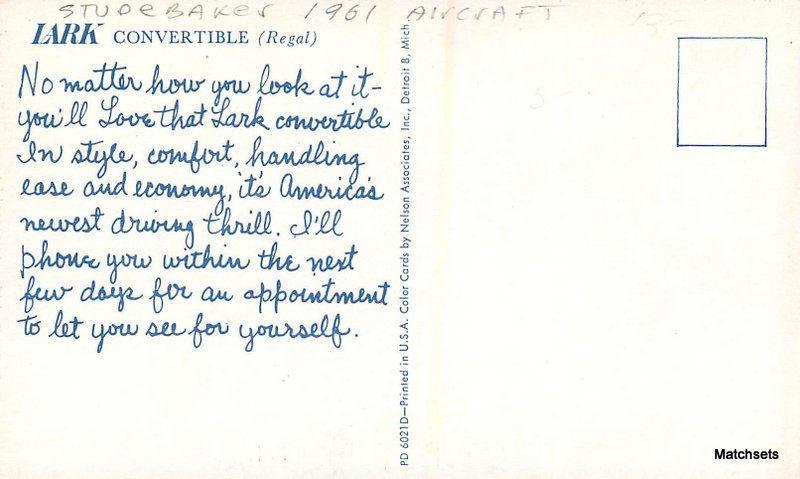 STUDEBAKER 1961 AIRCRAFT
LARK CONVERTIBLE (Regal)
No matter how you look at it-
you'll Love that Lark convertible
In style, comfort, handling
ease and economy, it's America's
newest driving thrill. I'll
phone you within the next
few days for an appointment
to let you see for yourself.
PD 6021D—Printed in U.S.A. Color Cards by Nelson Associates, Inc., Detroit 8, Mich
Matchsets